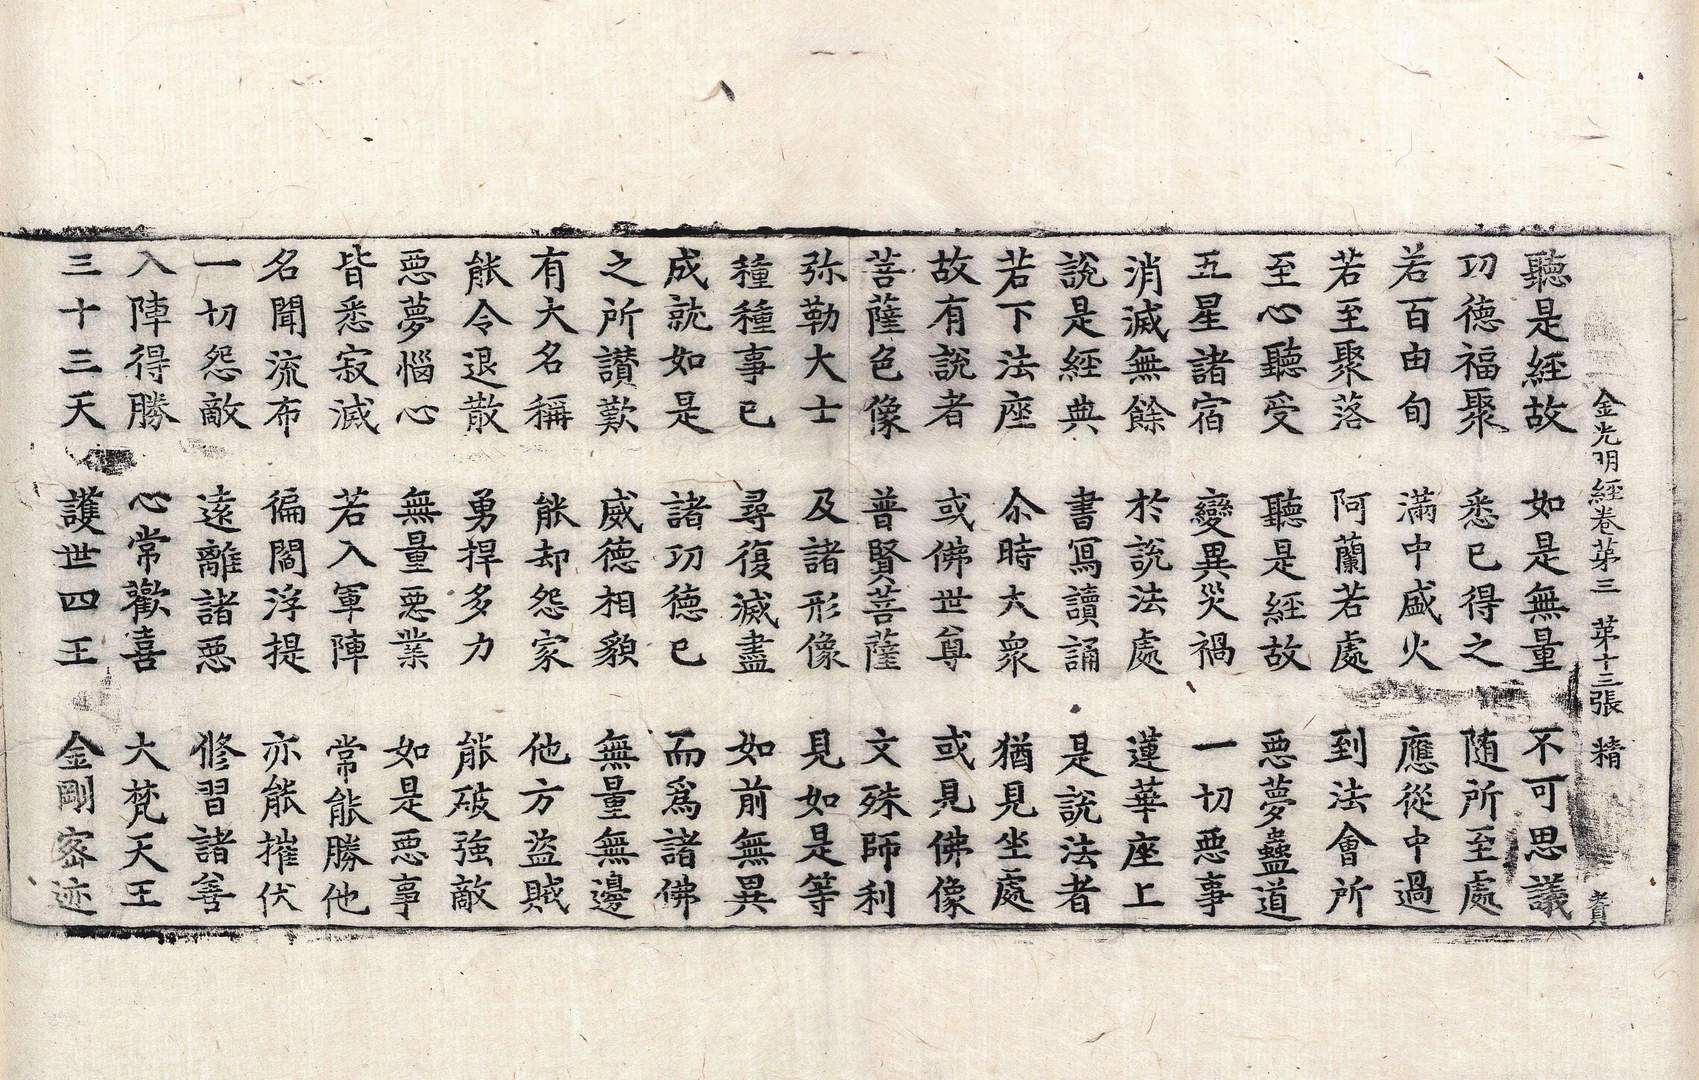 金光明經卷第三 第十三張 精
聽是經故 如是無量 不可思議
功德福聚 悉已得之 随所至處
若百由旬 滿中盛火 應從中過
若至聚落 阿蘭若處 到法會所
至心聽受 聽是經故 惡夢蠱道
五星諸宿 變異災禍 一切惡事
消滅無餘 於說法處 蓮華座上
說是經典 書寫讀誦 是說法者
若下法座 尒時大衆 猶見坐處
故有說者 或佛世尊 或見佛像
菩薩色像 普賢菩薩 文殊師利
弥勒大士 及諸形像 見如是等
種種事已 尋復滅盡 如前無異
成就如是 諸功德已 而爲諸佛
之所讃歎 威德相貌 無量無邊
有大名稱 能却怨家 他方盜賊
能令退散 勇捍多力 能破強敵
惡夢惱心 無量惡業 如是惡事
皆悉寂滅 若入軍陣 常能勝他
名聞流布 徧閻浮提 亦能摧伏
一切怨敵 遠離諸惡 修習諸善
入陣得勝 心常歡喜 大梵天王
三十三天 護世四王 金剛密迹